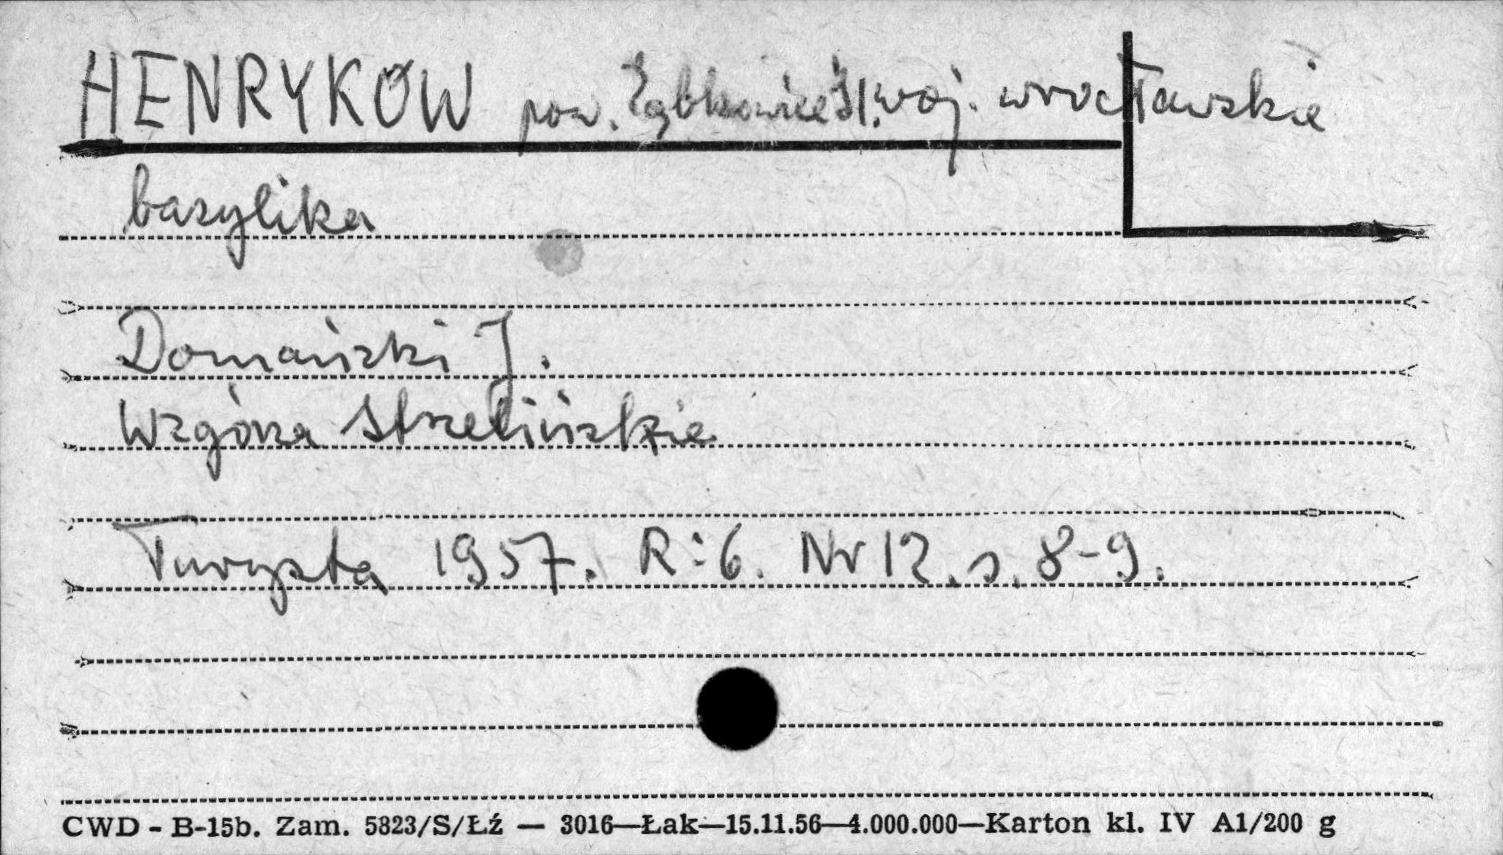 HENRYKÓW pow. Ząbkowice Śl. woj. wrocławskie
bazylika
Domański J.
Wzgórza Strzelińskie
Turysta 1957. R:6. Nr 12. s. 8-9.
CWD - B-15b. Zam. 5823/S/Łź — 3016—Łak—15.11.56—4.000.000—Karton kl. IV A1/200 g